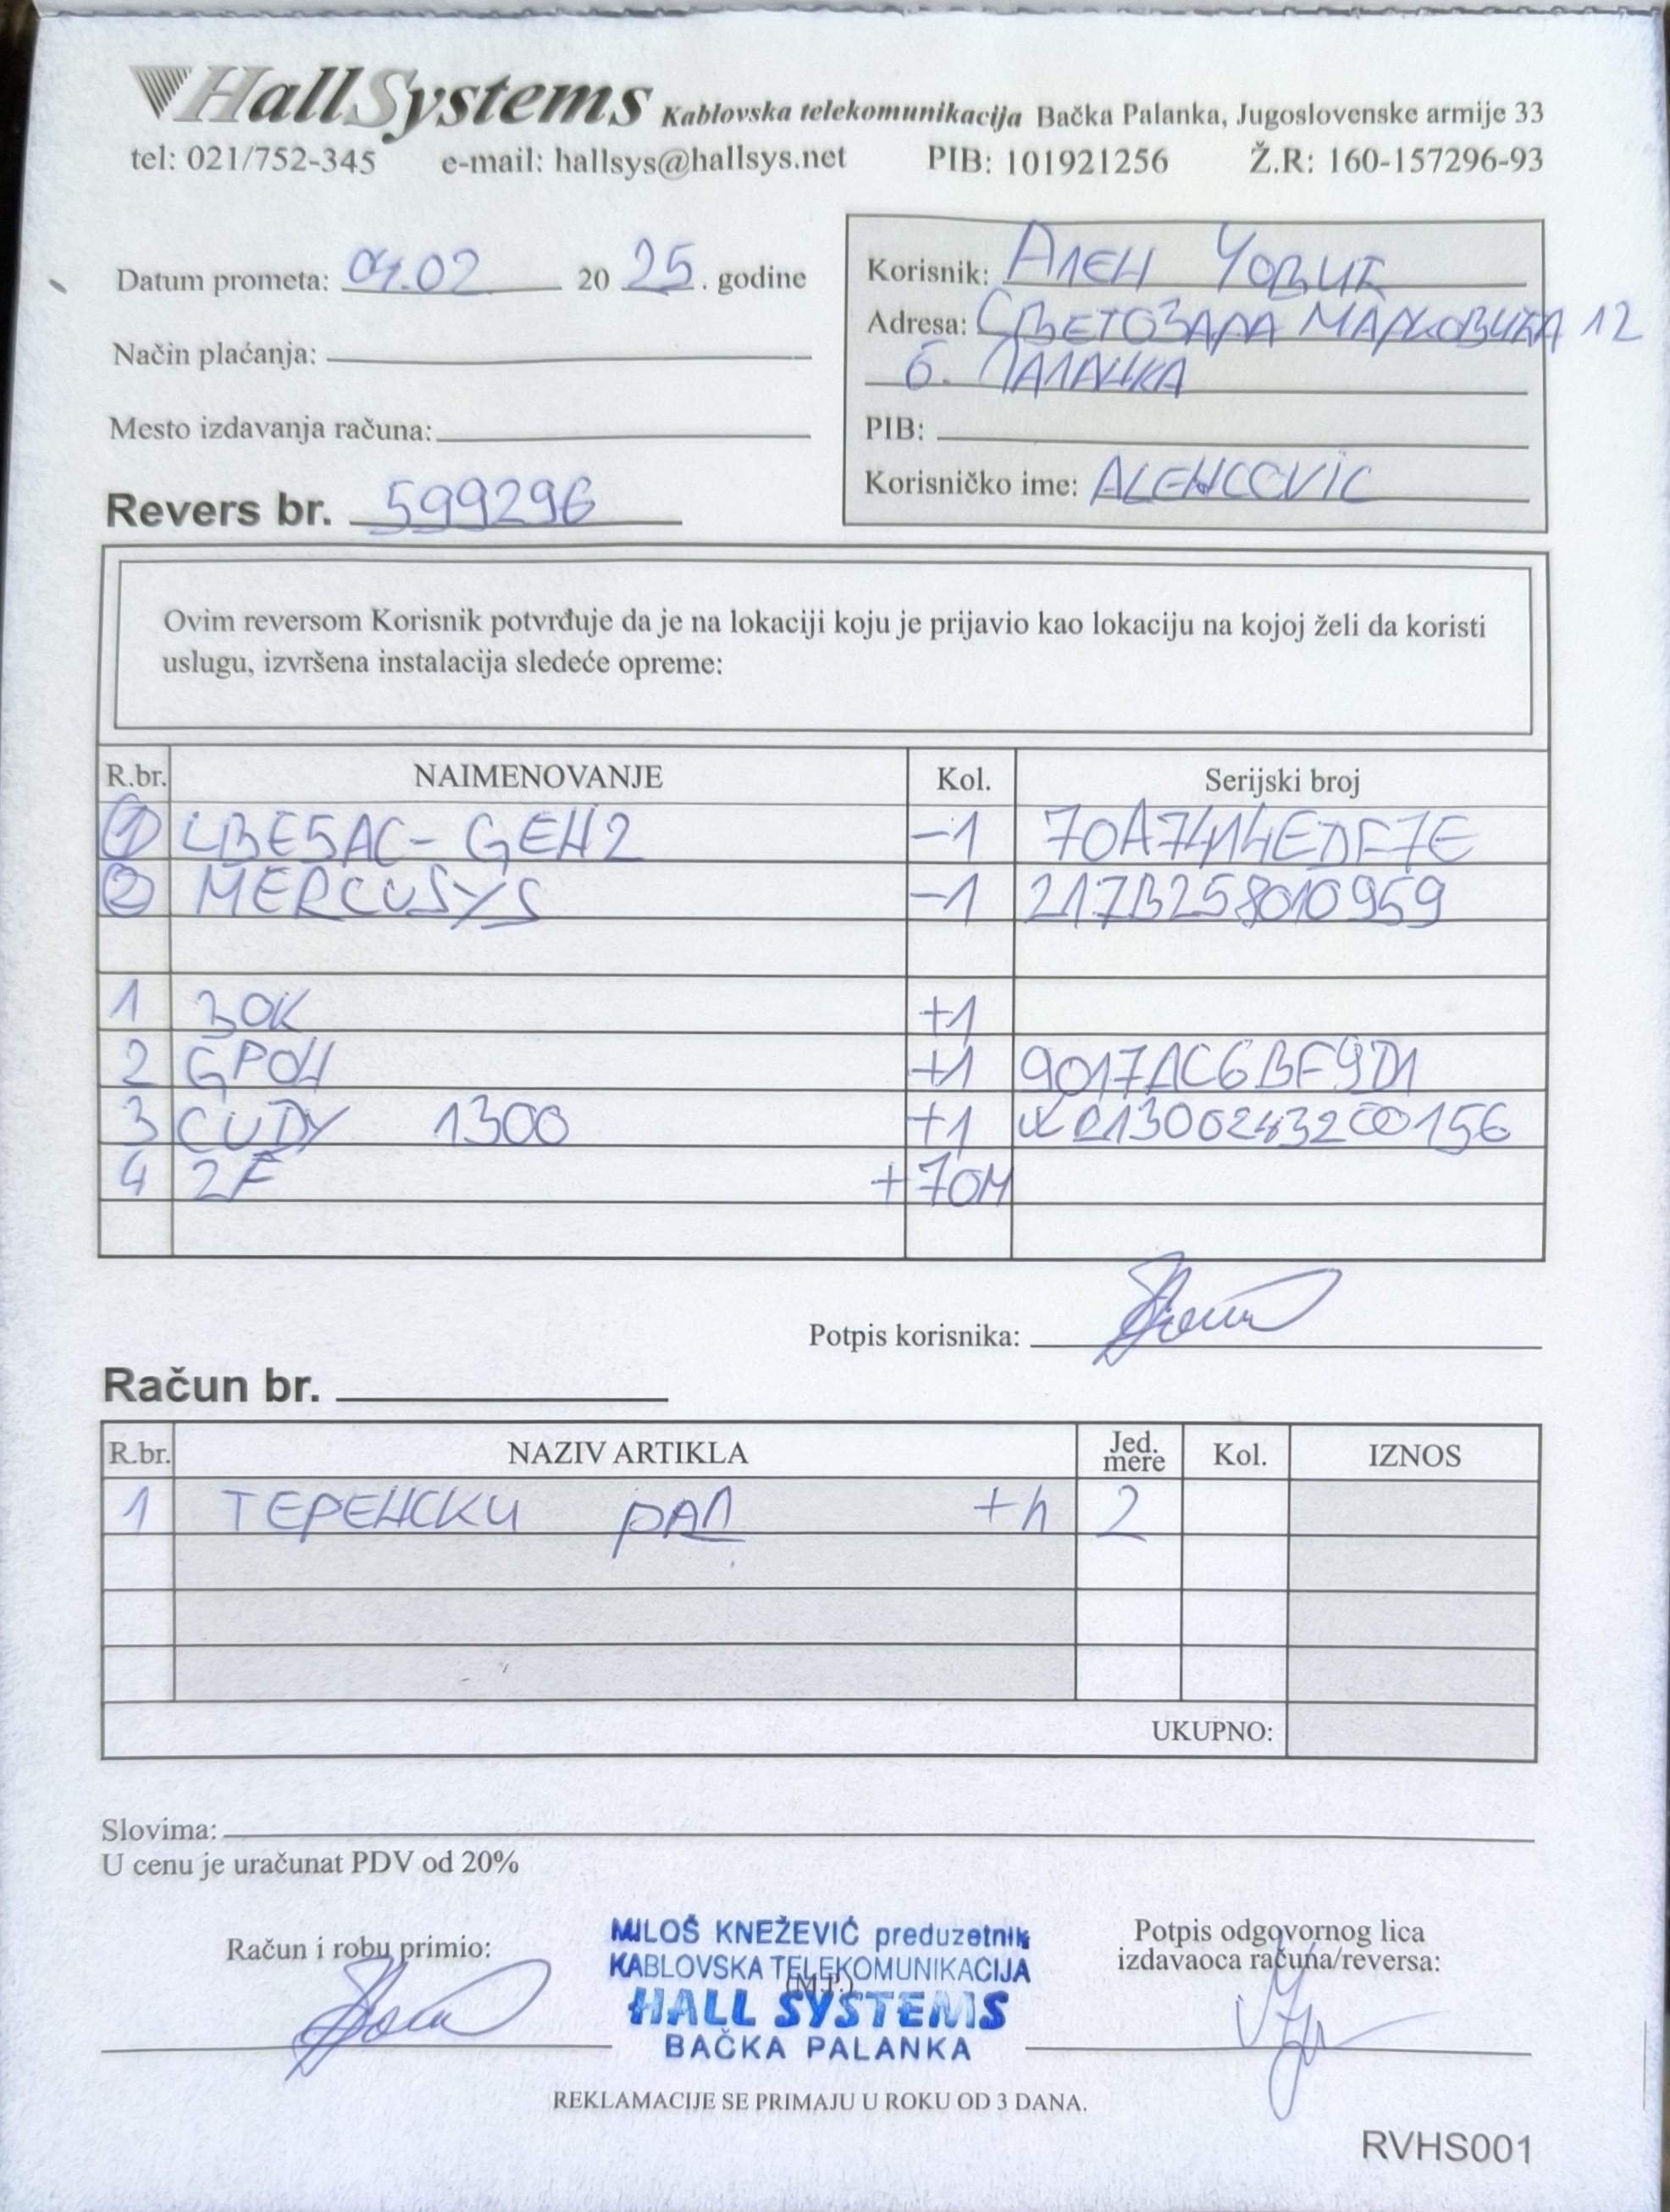 HallSystems Kablovska telekomunikacija Bačka Palanka, Jugoslovenske armije 33
tel: 021/752-345 e-mail: hallsys@hallsys.net PIB: 101921256 Ž.R: 160-157296-93
Datum prometa: 04.02 20 25. godine
Način plaćanja:
Mesto izdavanja računa:
Revers br. 599296
Korisnik: Ален Човић
Adresa: Светозара Марковића 12
Б. Паланка
PIB:
Korisničko ime: ALENCOVIC
Ovim reversom Korisnik potvrđuje da je na lokaciji koju je prijavio kao lokaciju na kojoj želi da koristi
uslugu, izvršena instalacija sledeće opreme:
R.br. NAIMENOVANJE Kol. Serijski broj
1 LBE5AC-GEH2 -1 70A7414EDF7E
2 MERCUSYS -1 217B258010959
1 ЗОК +1
2 GPOH +1 9017AC6BF9D1
3 CUDY 1300 +1
4 2F +70M
Potpis korisnika:
Račun br.
R.br. NAZIV ARTIKLA Jed. mere Kol. IZNOS
1 ТЕРЕНСКИ РАД +h 2
UKUPNO:
Slovima:
U cenu je uračunat PDV od 20%
Račun i robu primio:
MILOŠ KNEŽEVIĆ preduzetnik
KABLOVSKA TELEKOMUNIKACIJA
(M.P.)
HALL SYSTEMS
BAČKA PALANKA
Potpis odgovornog lica
izdavaoca računa/reversa:
REKLAMACIJE SE PRIMAJU U ROKU OD 3 DANA.
RVHS001